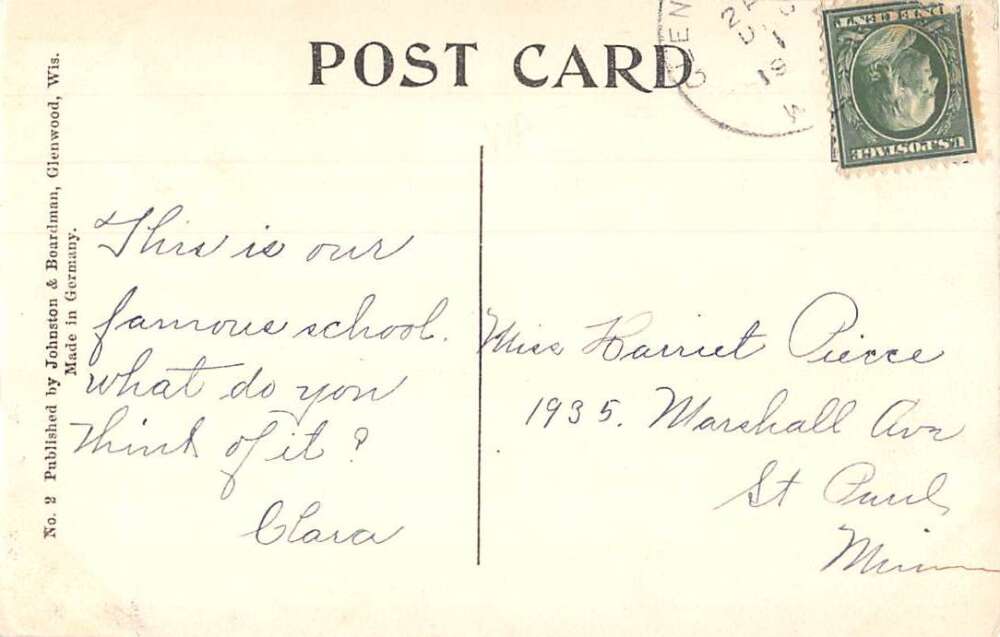 POST CARD
No. 2 Published by Johnston & Boardman, Glenwood, Wis.
Made in Germany.
U.S. POSTAGE
ONE CENT
This is our
famous school.
What do you
think of it?
Clara
Miss Harriet Pierce
1935. Marshall Ave
St Paul
Minn